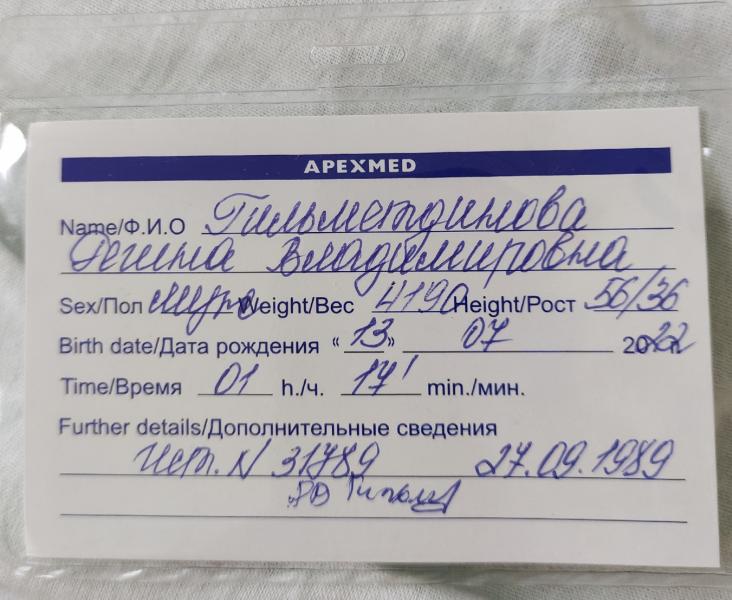 APEXMED
Name/Ф.И.О Гильметдинова
Регина Владимировна
Sex/Пол муж Weight/Вес 4190 Height/Рост 56/36
Birth date/Дата рождения « 13 » 07 2022
Time/Время 01 h./ч. 17' min./мин.
Further details/Дополнительные сведения
Ист. N 31789 27.09.1989